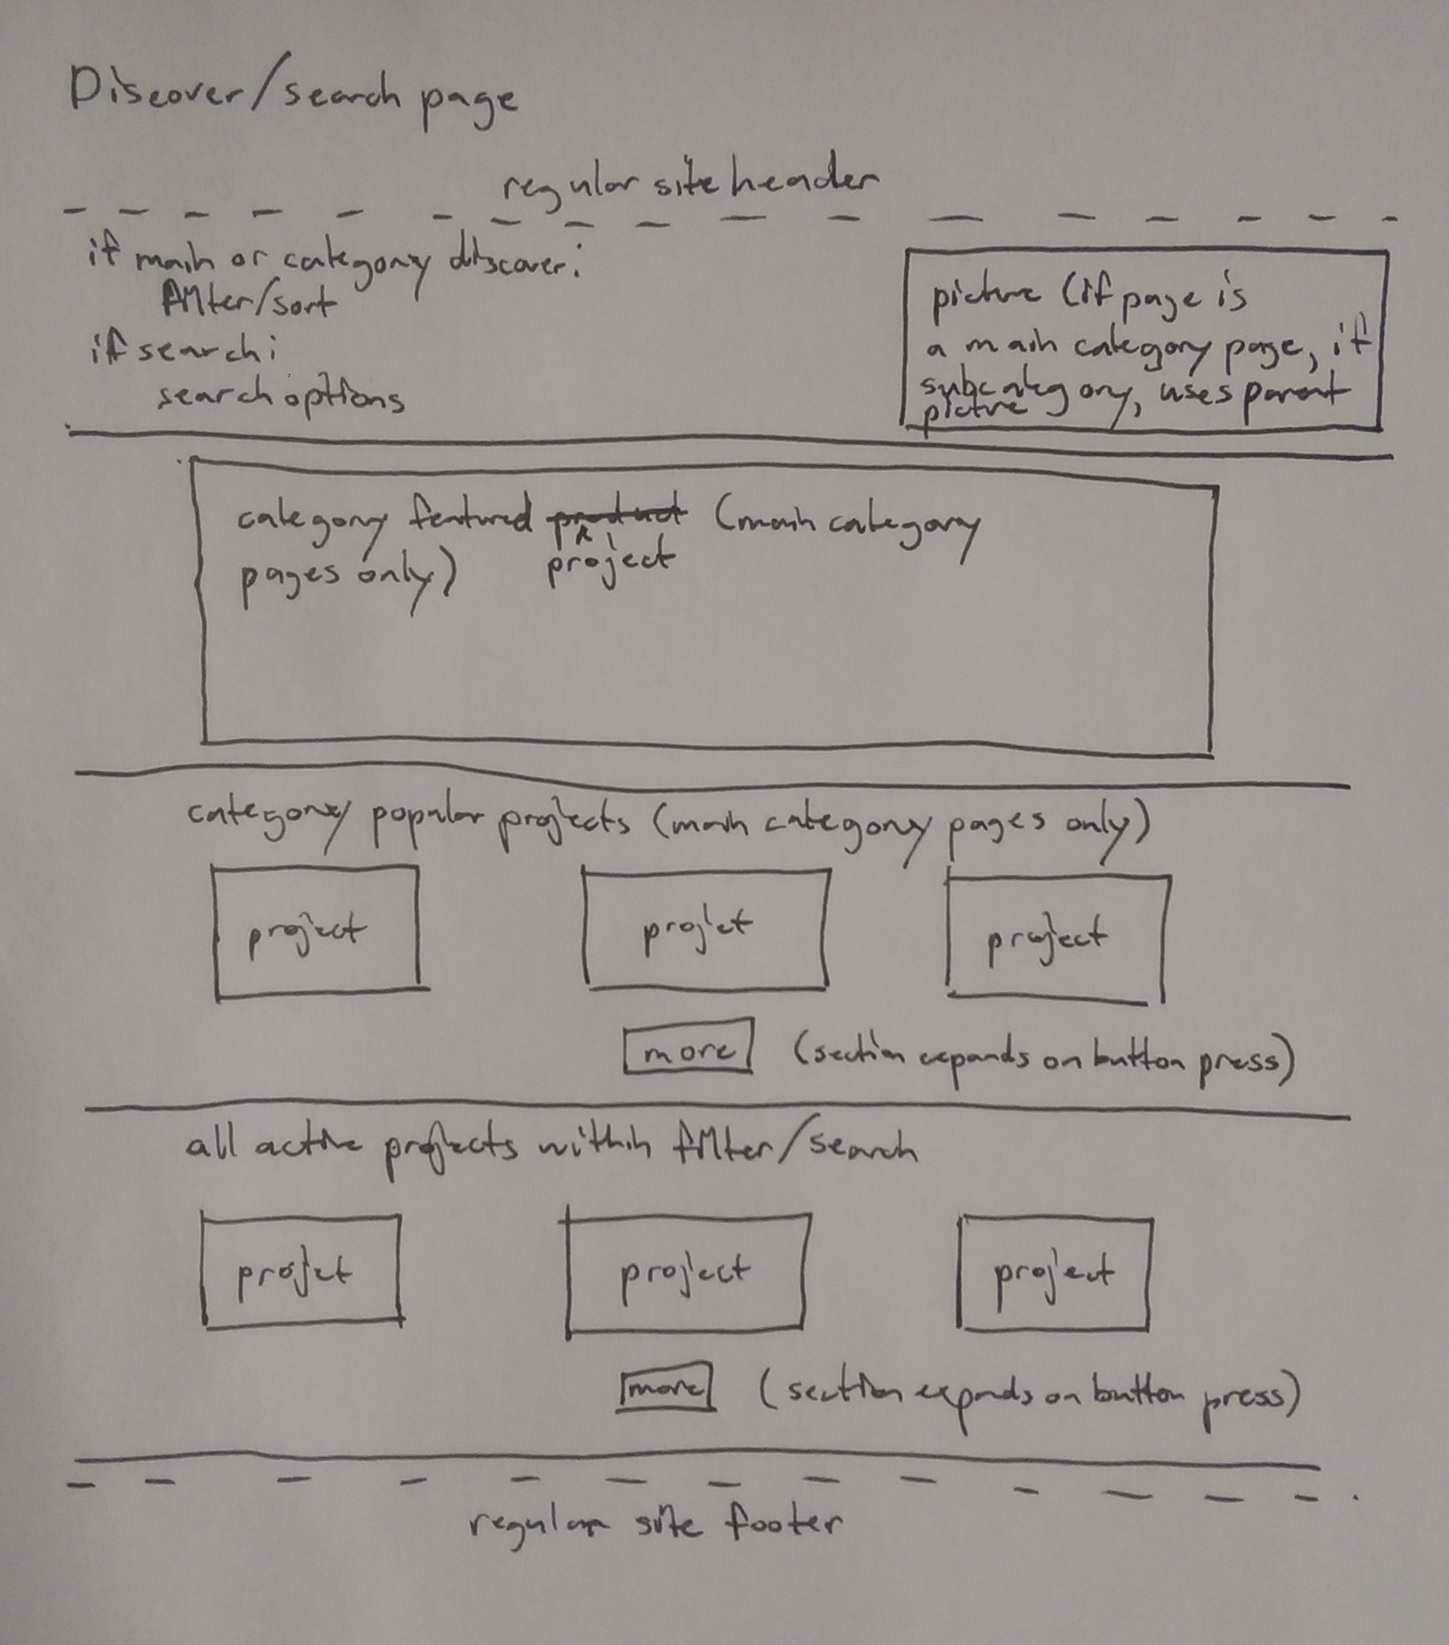 Discover/search page
regular site header
if main or category discover:
filter/sort
if search:
search options
picture (if page is
a main category page, if
subcategory, uses parent
picture
category featured product (main category
pages only) project
category popular projects (main category pages only)
project projet project
more (section expands on button press)
all active projects within filter/search
projet project project
more (section expands on button press)
regular site footer